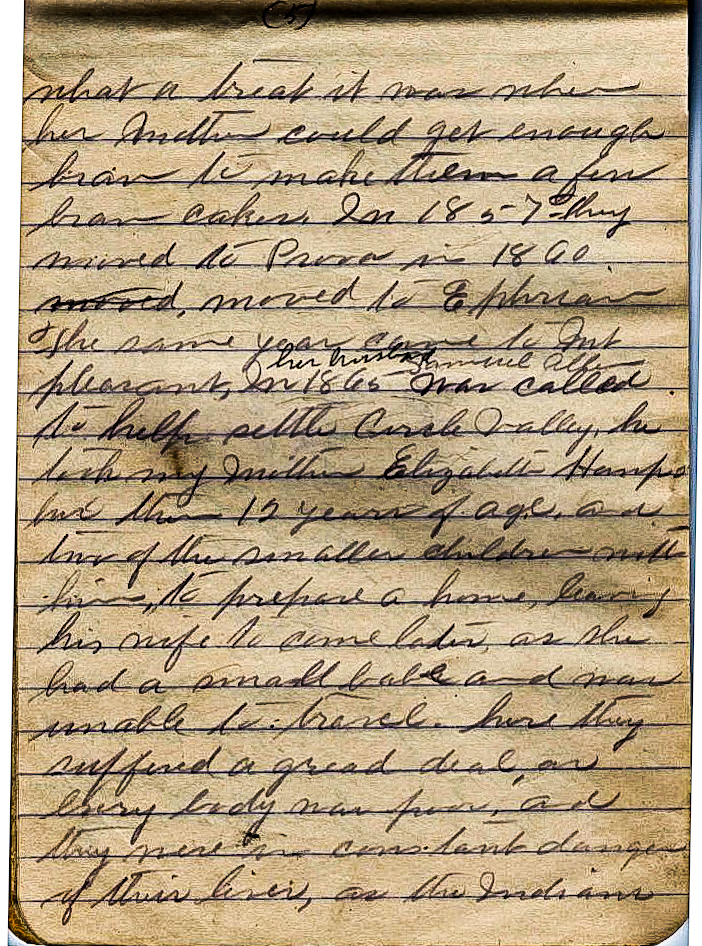 (5)
what a treat it was when
her Mother could get enough
bran to make them a few
bran cakes. In 1857 they
moved to Provo in 1860
moved, moved to Ephriam
the same year came to Mt
her husband Samuel
pleasant, In 1865 was called
to help settle Circle Valley, he
took my Mother Elizabeth
then 12 years of age, and
two of the smaller children with
him, to prepare a home, leaving
his wife to come later, as she
had a small babe and was
unable to travel. here they
suffered a gread deal, as
every body was poor, and
they were in constant danger
of their lives, as the Indians